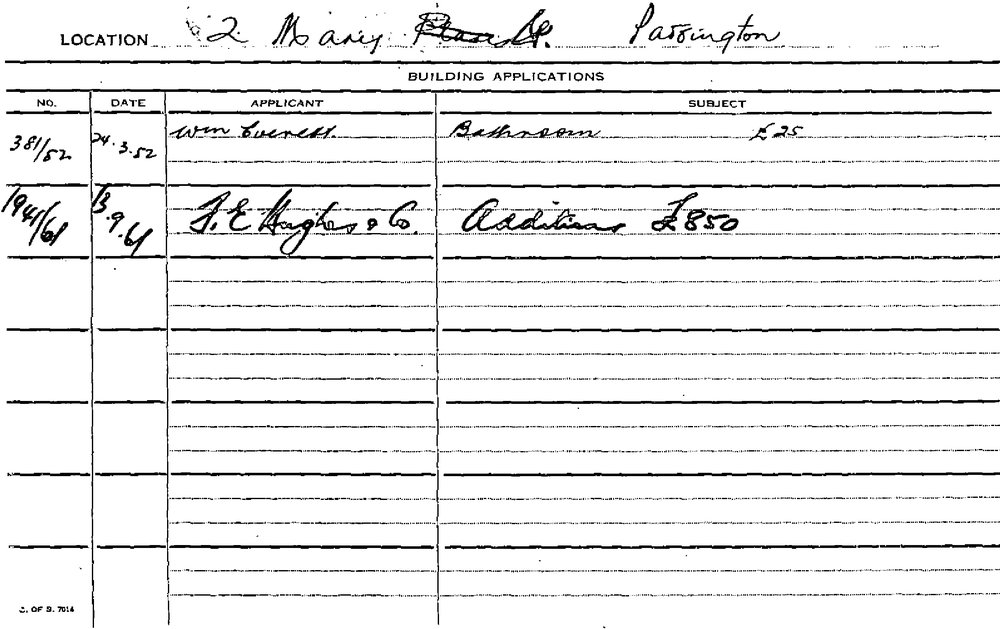 LOCATION 2 Mary Place St. Paddington
BUILDING APPLICATIONS
NO. DATE APPLICANT SUBJECT
381/52 24.3.52 Wm Everett Bathroom £25
1941/61 13.9.61 F. E Hughes & Co. Additions £850
C. OF S. 7014